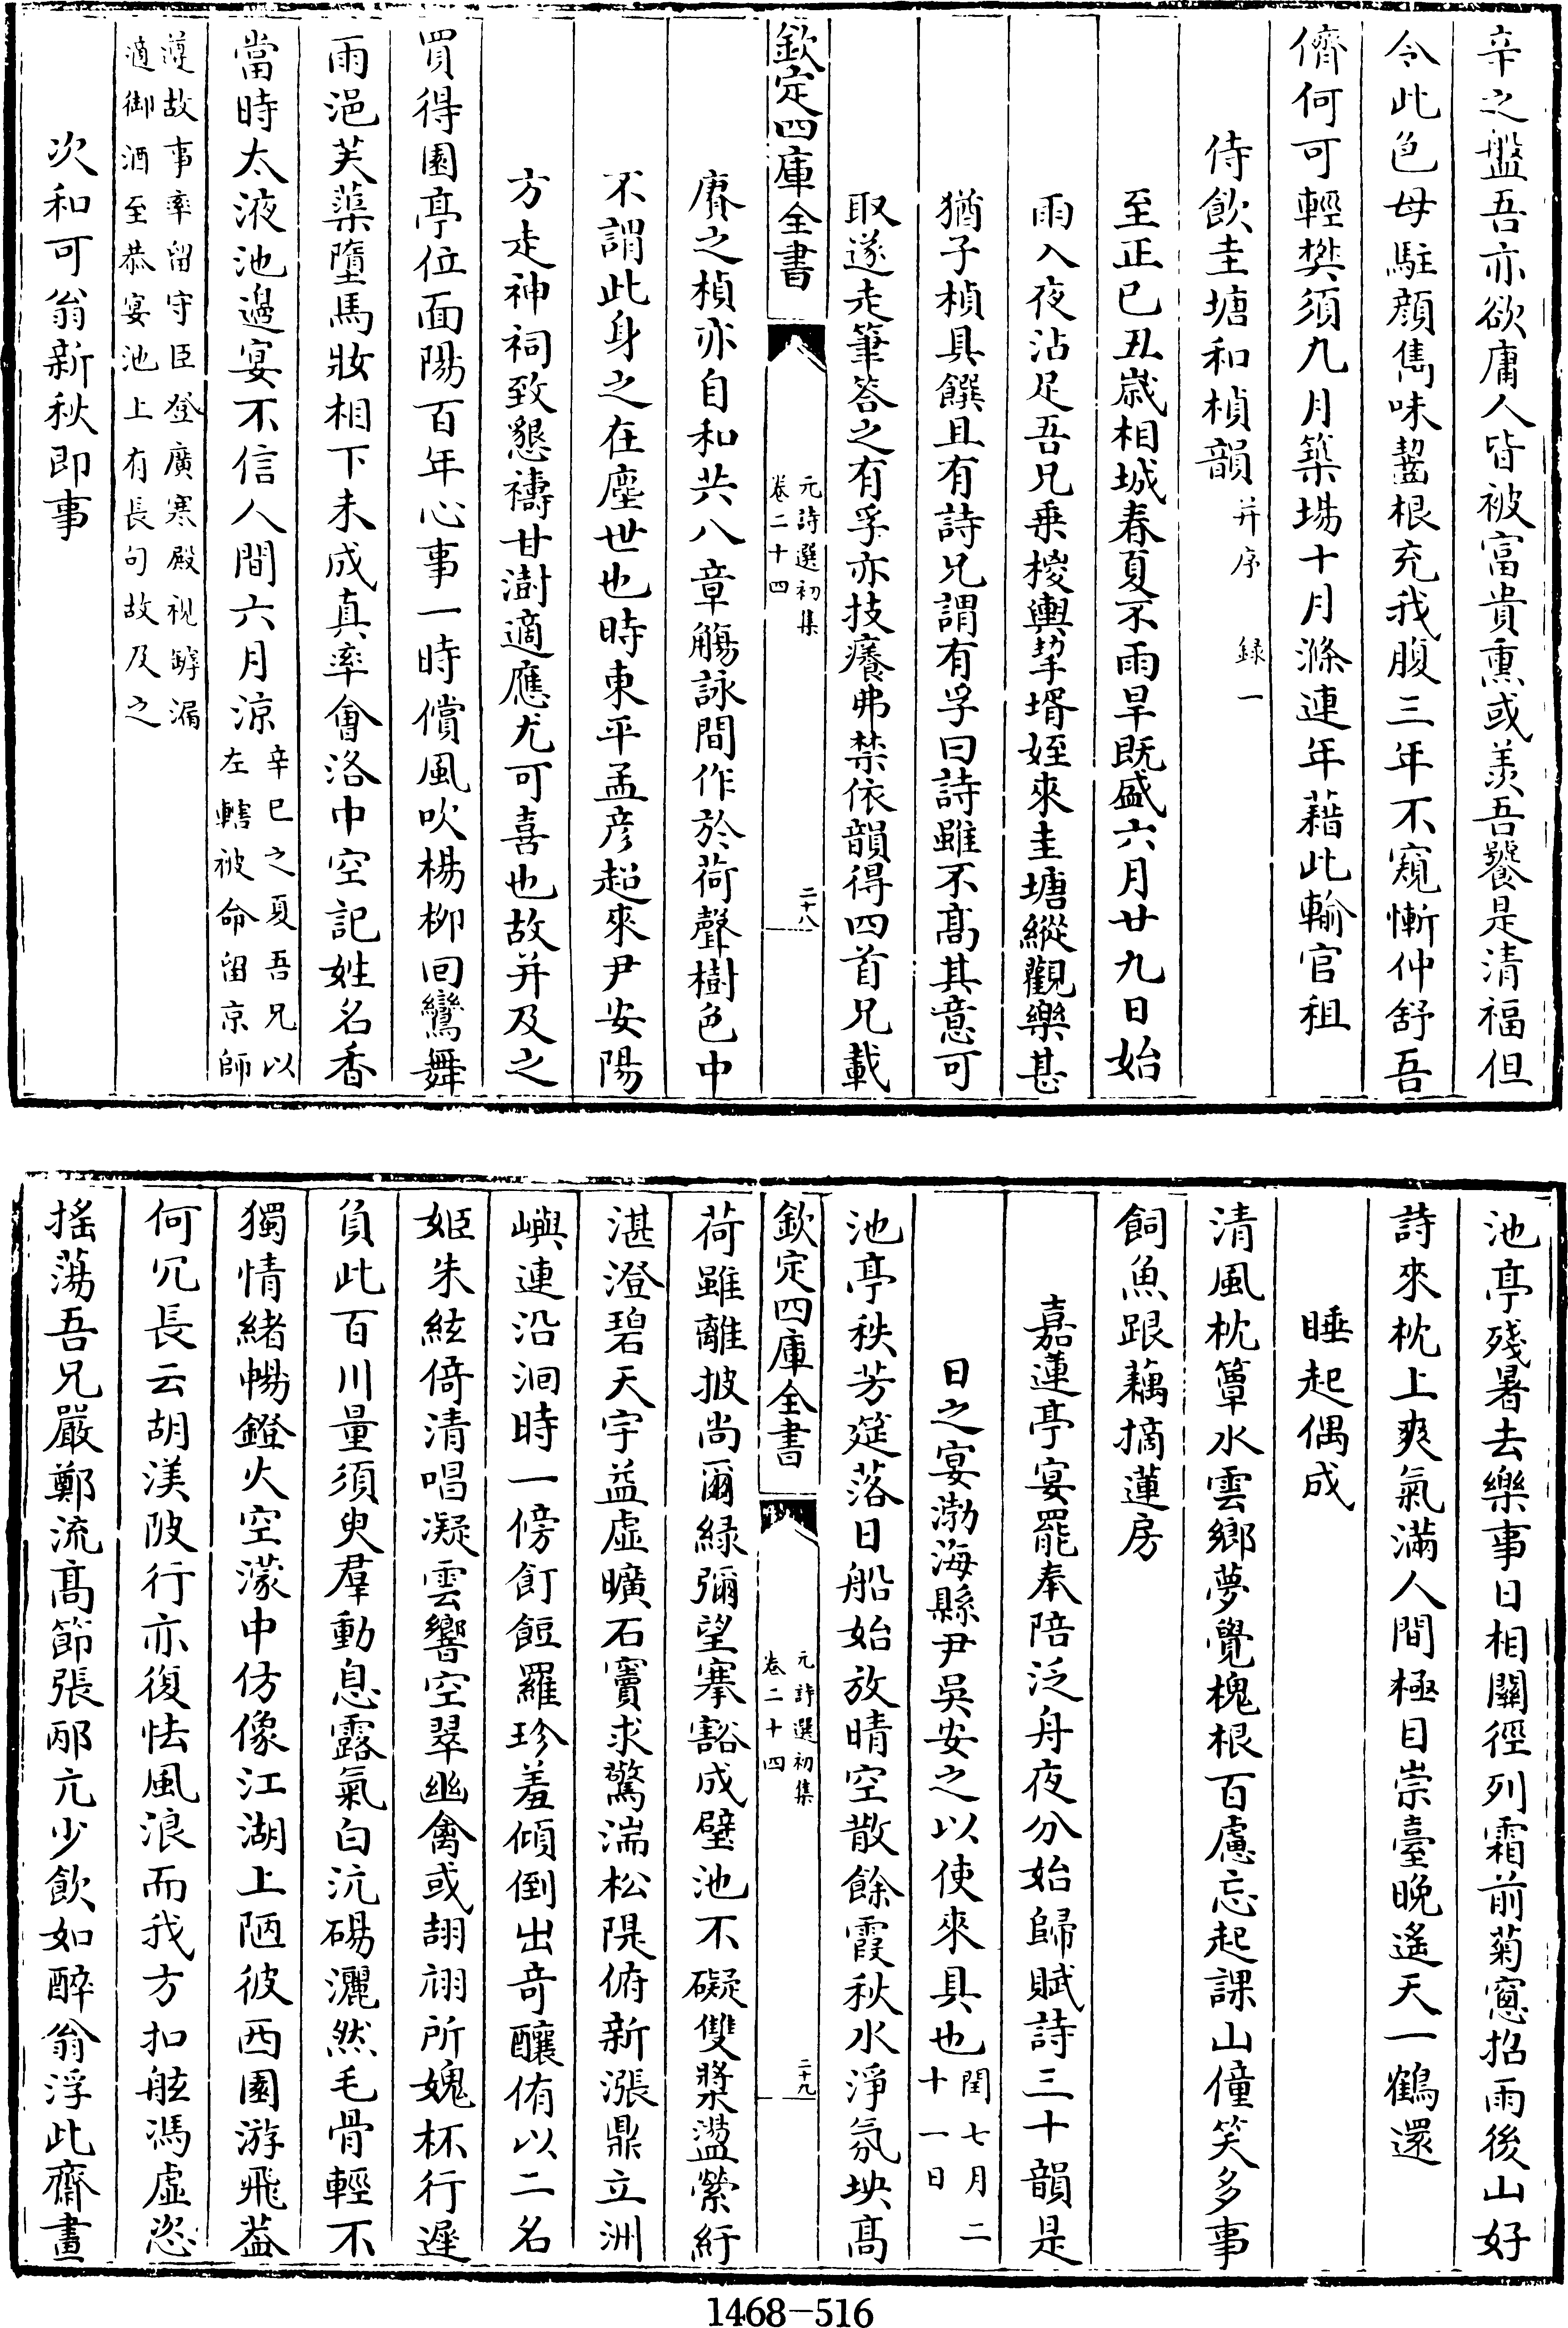 辛之盤吾亦欲庸人皆被富貴熏或羨吾饕是清福但
令此色母駐顔雋味齧根充我腹三年不窺慚仲舒吾
儕何可輕樊須九月築場十月滌連年藉此輸官租
侍飲圭塘和楨韻并序 録一
至正已丑嵗相城春夏不雨旱既盛六月廿九日始
雨入夜沾足吾兄乗椶輿挈壻姪來圭塘縱觀樂甚
猶子楨具饌且有詩兄謂有孚曰詩雖不髙其意可
取遂走筆答之有孚亦技癢弗禁依韻得四首兄載
欽定四庫全書
元詩選初集
卷二十四
二十八
賡之楨亦自和共八章觴詠間作於荷聲樹色中
不謂此身之在塵世也時東平孟彦超來尹安陽
方走神祠致懇禱甘澍適應尤可喜也故并及之
買得園亭位面陽百年心事一時償風吹楊柳回鸞舞
雨浥芙蕖墮馬妝相下未成真率㑹洛中空記姓名香
當時太液池邉宴不信人間六月涼
辛巳之夏吾兄以
左轄被命留京師
遵故事率留守臣登廣寒殿視罅漏
適御酒至恭宴池上有長句故及之
次和可翁新秋即事
池亭殘暑去樂事日相關徑列霜前菊窓招雨後山好
詩來枕上爽氣滿人間極目崇臺晚遙天一鶴還
睡起偶成
清風枕簟水雲鄉夢覺槐根百慮忘起課山僮笑多事
飼魚跟藕摘蓮房
嘉蓮亭宴罷奉陪泛舟夜分始歸賦詩三十韻是
日之宴渤海縣尹吳安之以使來具也
閏七月二
十一日
池亭秩芳筵落日船始放晴空散餘霞秋水淨氛坱髙
欽定四庫全書
元詩選初集
卷二十四
二十九
荷雖離披尚爾緑彌望搴豁成壁池不礙雙槳盪縈紆
湛澄碧天宇益虚曠石竇求驚湍松隄俯新漲鼎立洲
嶼連沿洄時一傍飣餖羅珍羞傾倒出竒釀侑以二名
姬朱絃倚清唱凝雲響空翠幽禽或頡翃所媿杯行遲
負此百川量須臾羣動息露氣白沆碭灑然毛骨輕不
獨情緒暢鐙火空濛中仿像江湖上陋彼西園游飛葢
何冗長云胡渼陂行亦復怯風浪而我方扣舷馮虚恣
搖蕩吾兄嚴鄭流髙節張邴亢少飲如醉翁浮此齋畫
1468-516